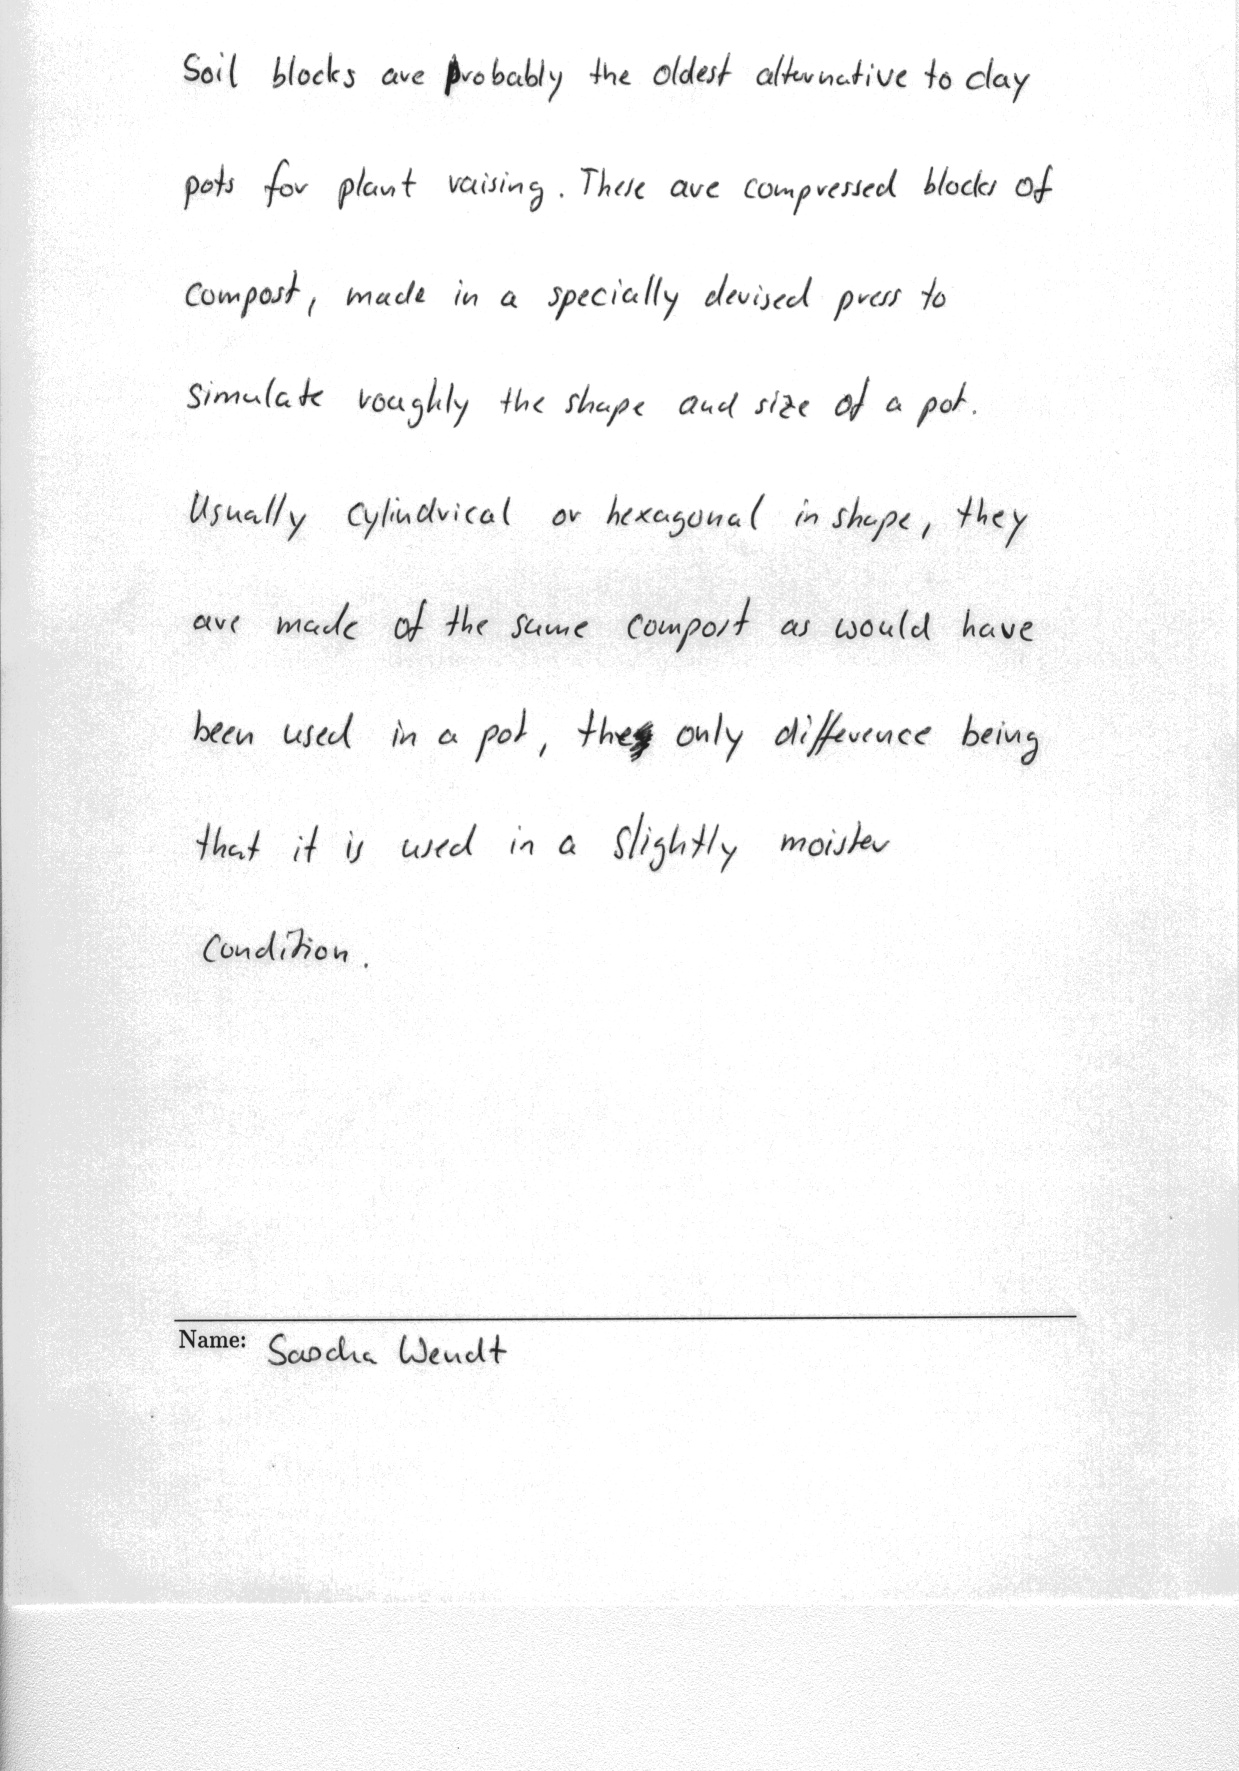 Soil blocks are probably the oldest alternative to clay
pots for plant raising. These are compressed blocks of
compost, made in a specially devised press to
simulate roughly the shape and size of a pot.
Usually cylindrical or hexagonal in shape, they
are made of the same compost as would have
been used in a pot, the only difference being
that it is used in a slightly moister
condition.
Name: Sascha Wendt